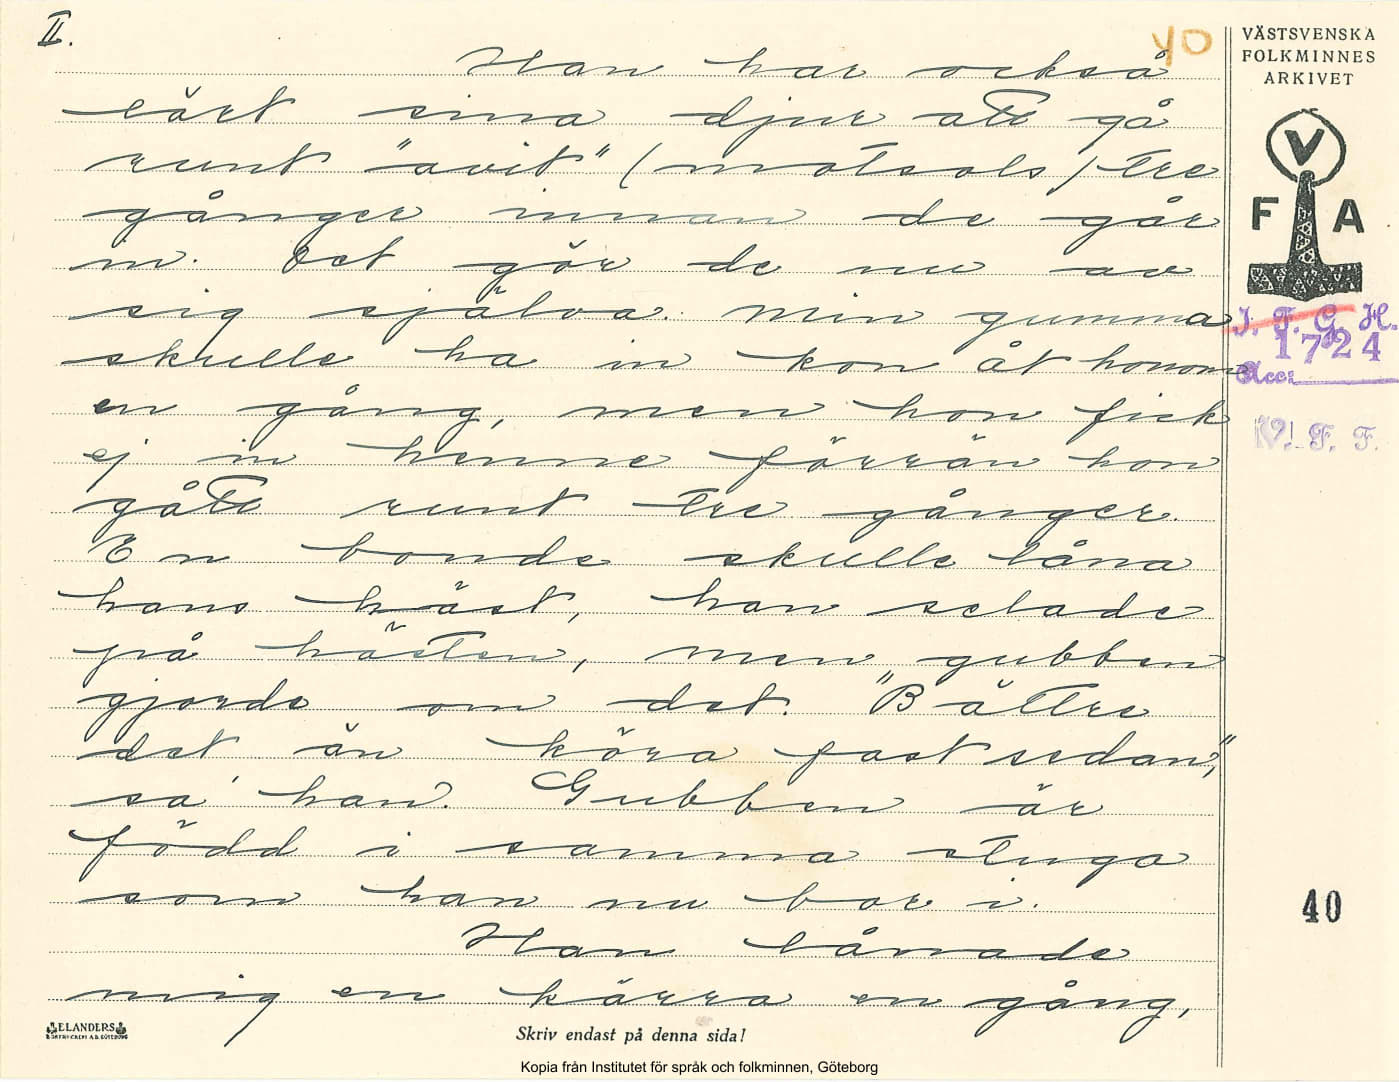 II.
40
Han har också
lärt sina djur att gå
runt "avit" (motsols) tre
gånger innan de går
in. Det gör de nu av
sig själva. Min gumma
skulle ha in kon åt honom
en gång, men hon fick
ej in henne förrän hon
gått runt tre gånger.
En bonde skulle låna
hans häst, han selade
på hästen, men gubben
gjorde om det. "Bättre
det än köra fast sedan,"
sa' han. Gubben är
född i samma stuga
som han nu bor i.
Han lånade
mig en kärra en gång,
VÄSTSVENSKA
FOLKMINNES
ARKIVET
V
F A
I. F. G. H.
1724
Acc:
V. F. F.
40
ELANDERS
Skriv endast på denna sida!
Kopia från Institutet för språk och folkminnen, Göteborg